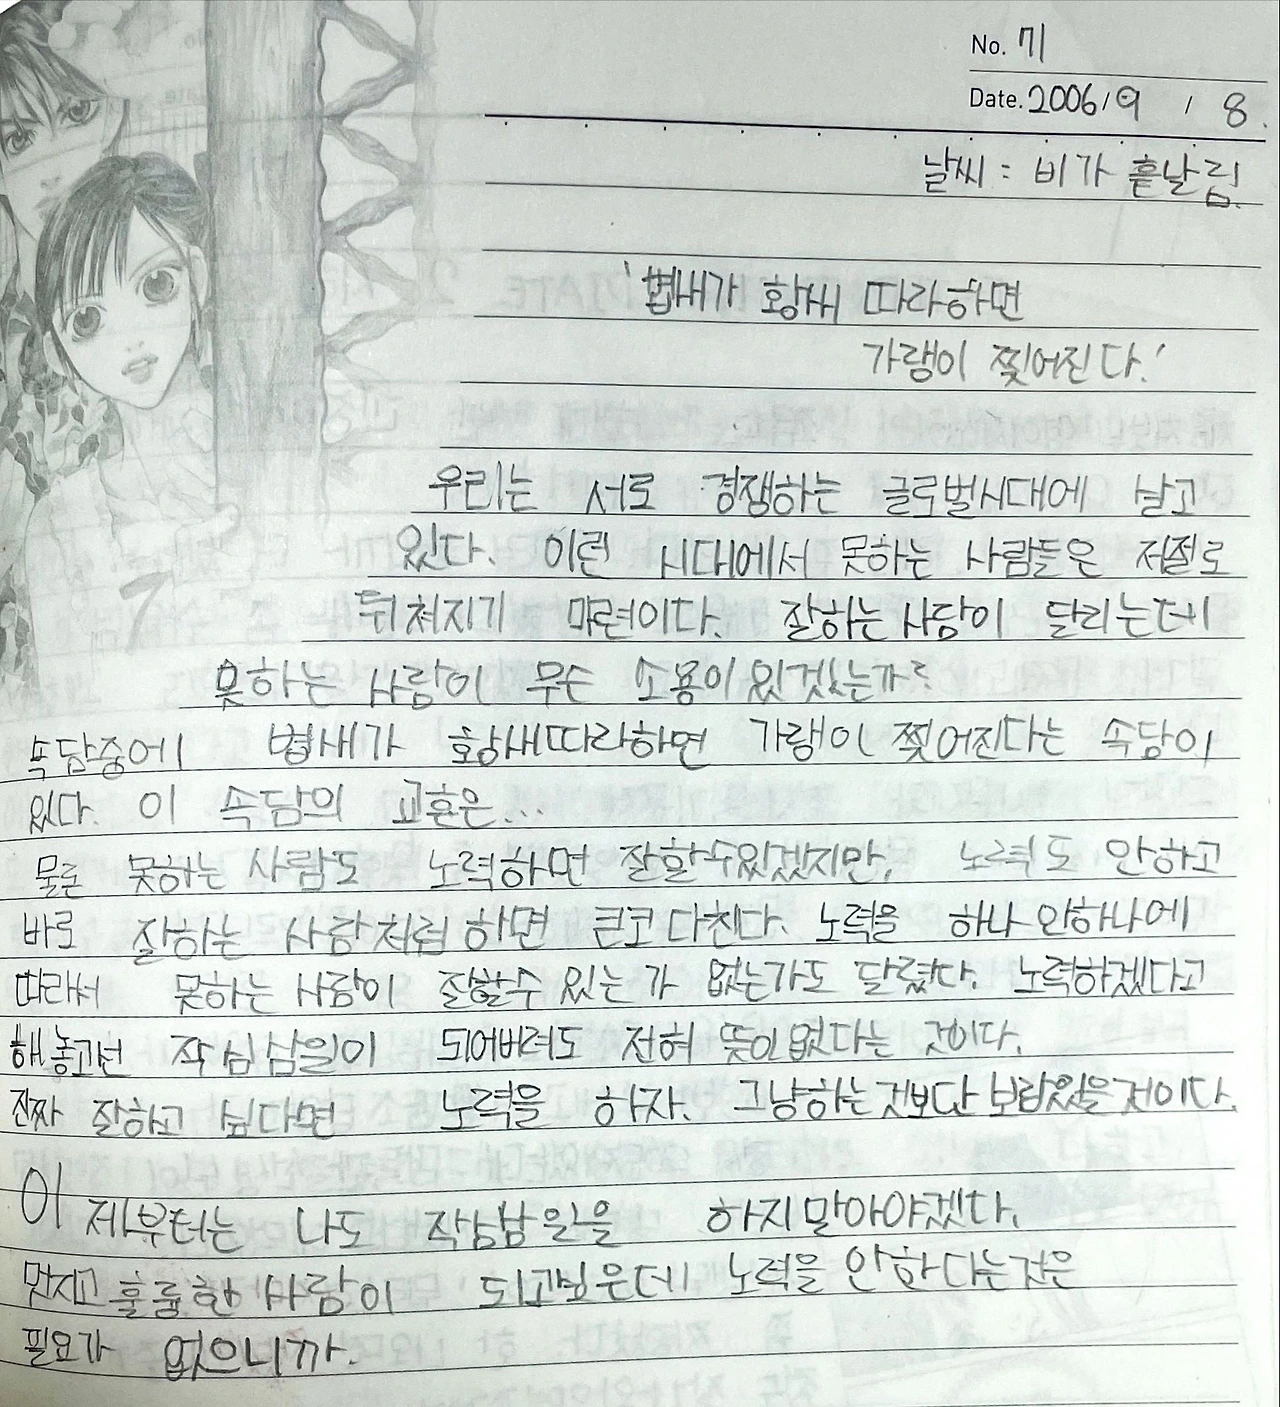 No. 71
Date. 2006 / 9 / 8.
날씨 : 비가 흩날림.
'뱁새가 황새 따라하면
가랭이 찢어진다.'
우리는 서로 경쟁하는 글로벌시대에 살고
있다. 이런 시대에서 못하는 사람들은 저절로
뒤쳐지기 마련이다. 잘하는 사람이 달리는데
못하는 사람이 무슨 소용이 있겠는가?
속담중에 뱁새가 황새따라하면 가랭이 찢어진다는 속담이
있다. 이 속담의 교훈은...
물론 못하는 사람도 노력하면 잘할수있겠지만, 노력도 안하고
바로 잘하는 사람처럼 하면 큰코 다친다. 노력을 하나 안하나에
따라서 못하는 사람이 잘할수 있는가 없는가도 달렸다. 노력하겠다고
해놓고선 작심삼일이 되어버려도 전혀 뜻이 없다는 것이다.
진짜 잘하고 싶다면 노력을 하자. 그냥하는것보단 보람있을것이다.
이제부터는 나도 작심삼일을 하지말아야겠다.
멋지고 훌륭한 사람이 되고싶은데 노력을 안한다는것은
필요가 없으니까.